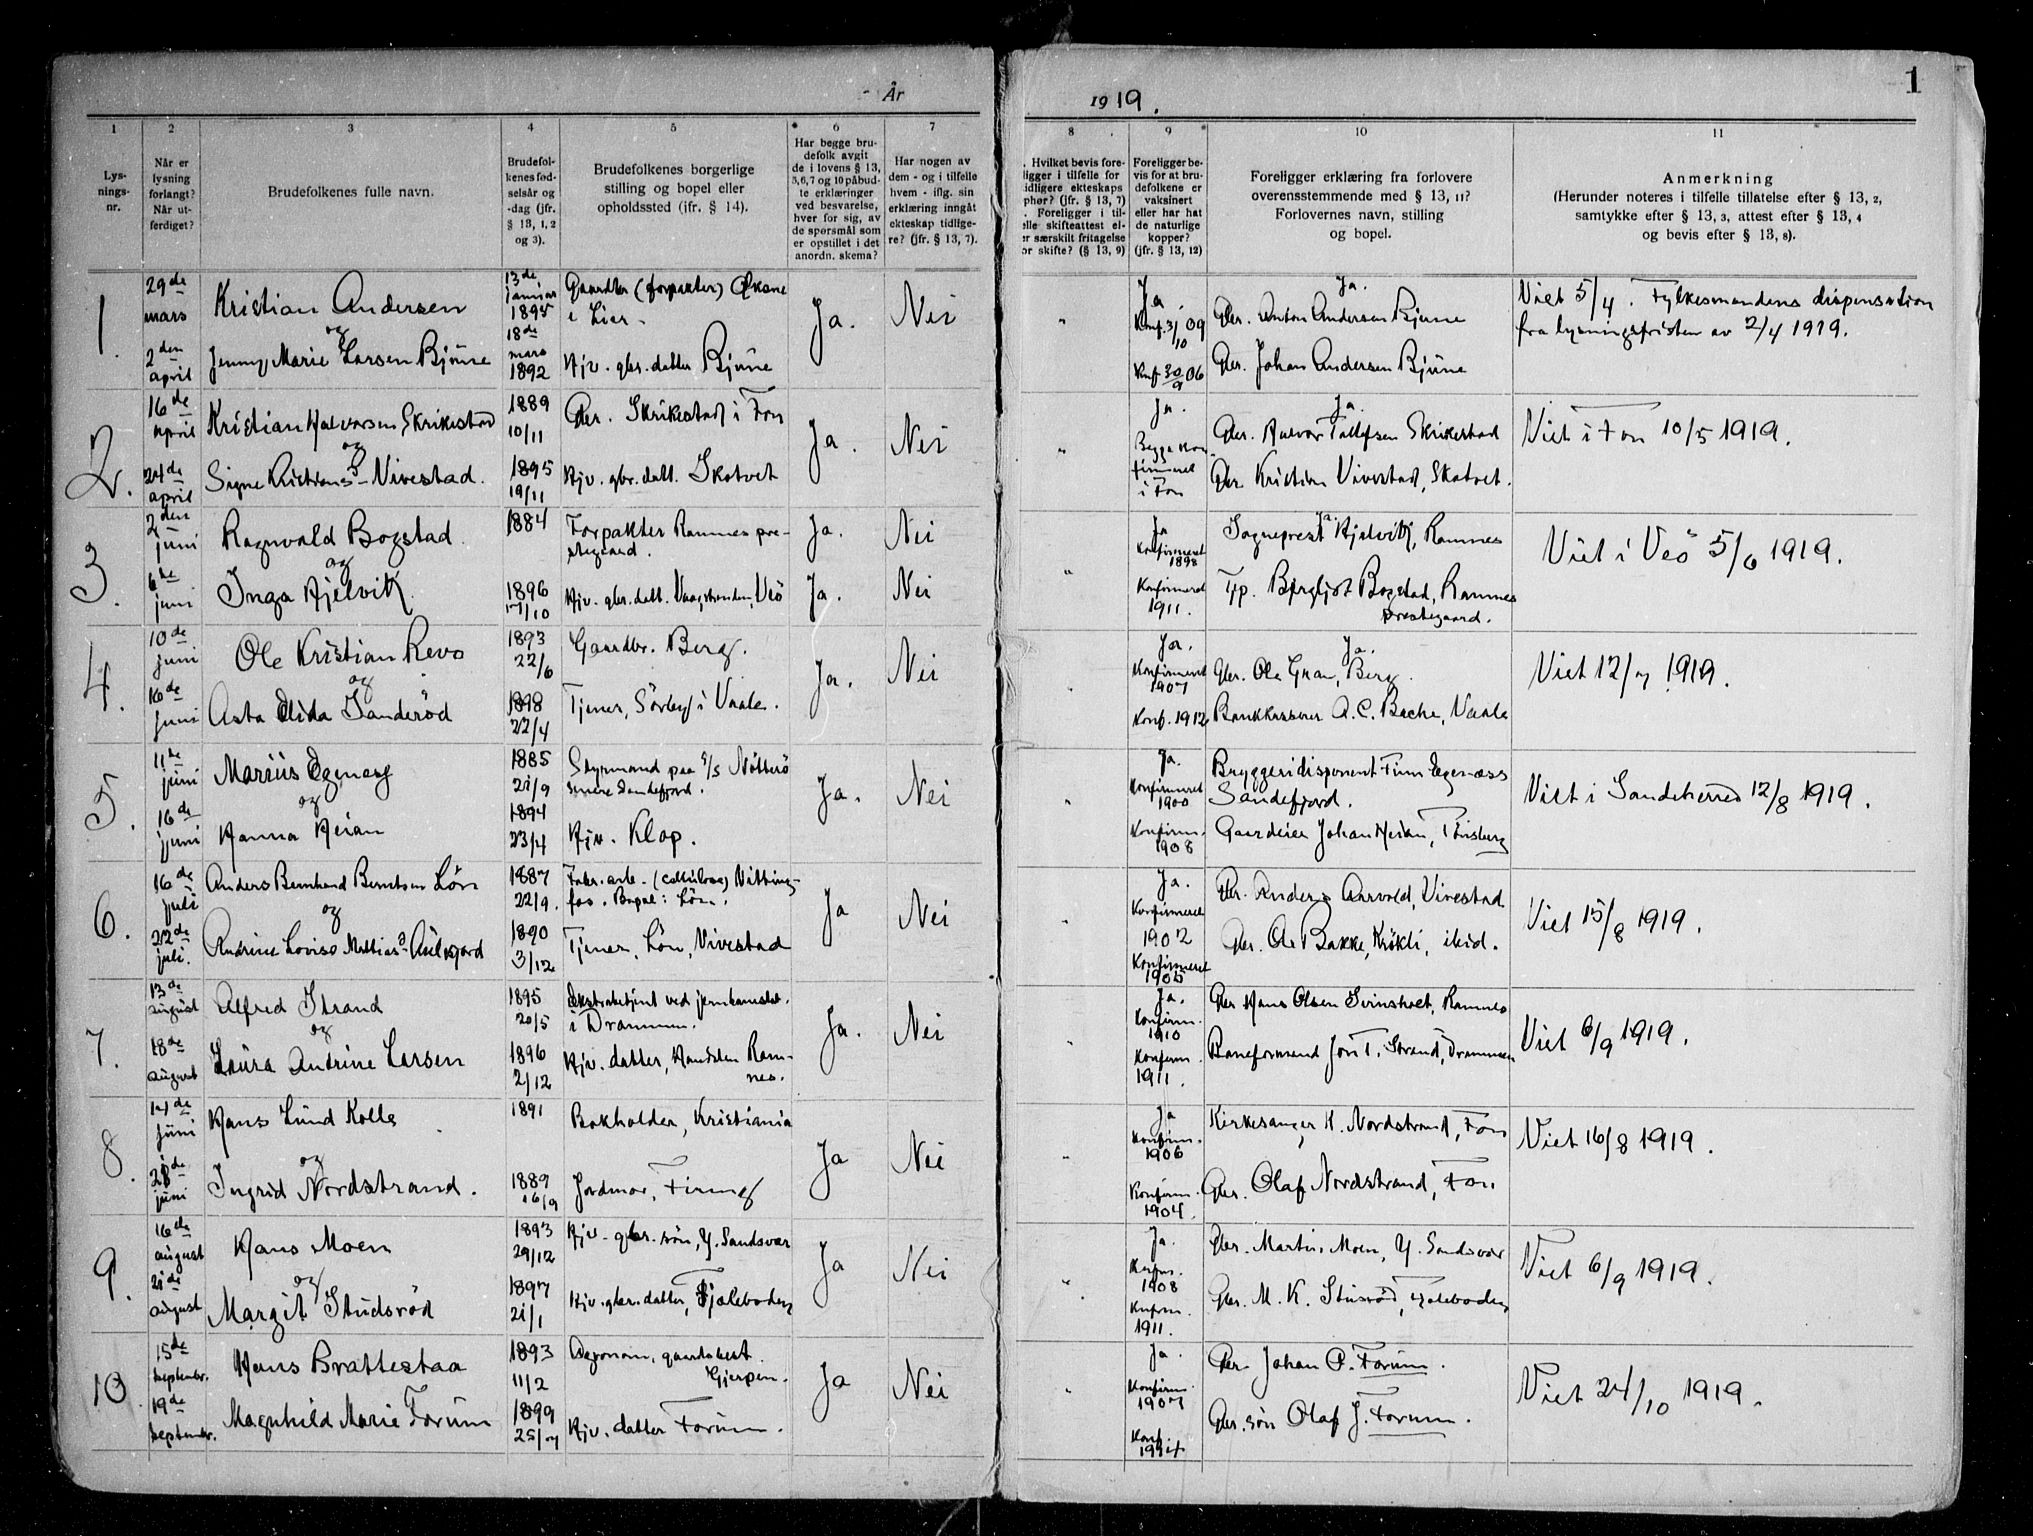 År
1919.
1
1
2
3
4
5
6
7
8
9
10
11
Lys-
nings-
nr.
Når er
lysning
forlangt?
Når ut-
ferdiget?
Brudefolkenes fulle navn.
Brudefol-
kenes fød-
selsår og
-dag (jfr.
§ 13, 1, 2
og 3).
Brudefolkenes borgerlige
stilling og bopel eller
opholdssted (jfr. § 14).
Har begge bru-
defolk avgit
de i lovens § 13,
5,6,7 og 10 påbud-
te erklæringer
ved besvarelse,
hver for sig, av
de spørsmål som
er opstillet i det
anordn. skema?
Har nogen av
dem - og i tilfelle
hvem - iflg. sin
erklæring inngått
ekteskap tidlige-
re? (jfr. § 13, 7).
Hvilket bevis fore-
ligger i tilfelle for
tidligere ekteskaps
ophør? (jfr. § 13, 7)
Foreligger i til-
elle skifteattest el-
er særskilt fritagelse
or skifte? (§ 13, 9)
Foreligger be-
vis for at bru-
defolkene er
vaksinert
eller har hat
de naturlige
kopper?
(jfr. § 13, 12)
Foreligger erklæring fra forlovere
overensstemmende med § 13, 11?
Forlovernes navn, stilling
og bopel.
Anmerkning
(Herunder noteres i tilfelle tillatelse efter § 13, 2,
samtykke efter § 13, 3, attest efter § 13, 4
og bevis efter § 13, 8).
1.
29de
mars
2den
april
Kristian Andersen
og
Jenny Marie Larsen Bjune
13de
januar
1895
18de
mars
1892
Gaardbr (forpakter)
i Lier
Hjv. gbr. datter Bjune
Ja.
Nei
"
Ja.
Konf. 3/10 09
Konf. 30/9 06
Ja.
Gbr. Anton Andersen Bjune
Gbr. Johan Andersen Bjune
Viet 5/4. Fylkesmandens dispensation
fra lysningsfristen av 2/4 1919.
2.
16de
april
24de
april
Kristian Halvorsen Skrikestad
og
Signe Kristians d Vivestad.
1889
10/11
1895
19/11
Gbr. Skrikestad i Fon
Hjv. gbr. datt. Skotvet
Ja.
Nei
"
Ja.
Begge kon-
firmeret
i Fon
Ja.
Gbr. Halvor Tollefsen Skrikestad
Gbr. Kristian Vivestad, Skotvet.
Viet i Fon 10/5 1919.
3.
2den
juni
6te
juni
Ragnvald Bogstad
og
Inga Hjelvik
1884
1896
17/10
Forpakter Ramnes pre-
stegaard.
Hjv. gbr. datt. Vaagstranden, Veö
Ja.
Ja.
Nei
Nei
"
Ja
Konfirmeret
1898
Konfirmeret
1911.
Ja
Sogneprest Hjelvik, Ramnes
Bogstad, Ramnes
prestegaard.
Viet i Veö 5/6 1919.
4.
10de
juni
16de
juni
Ole Kristian Revo
og
Asta Elida Sanderöd
1893
22/6
1898
22/4
Gaardbr. Berg.
Tjener, Sörby i Vaale.
Ja.
Nei
Ja.
Konfirmeret
1907
Konf. 1912
Ja.
Gbr. Ole Gran, Berg.
Bankkasserer A. C. Bache, Vaale
Viet 12/7 1919.
5.
11de
juni
16de
juni
Marius Egenæs
og
Hanna Heian
1885
21/9
1894
23/4
Styrmand paa S/S Nötterö
senere Sandefjord.
Hjv. Klop.
Ja.
Nei
"
Ja.
Konfirmeret
1900
Konfirm.
1908
Bryggeridisponent Finn Egenæss
Sandefjord.
Gaardeier Johan Heian, Tönsberg
Viet i Sandeherred 12/8 1919.
6.
16de
juli
22de
juli.
Anders Bernhard Berntsen Lön
og
Andrine Lovise Mathias d Aulesjord
1887
22/9.
1890
3/12
Fabr. arb. (cellulose) Vitting-
fos. Bopæl: Lön.
Tjener, Lön, Vivestad
Ja
Nei
"
Ja.
Konfirmeret
1902
Konfirmeret
1905
Gbr. Anders Aarvold, Vivestad
Gbr. Ole Bakke, Krökli, ibid.
Viet 15/8 1919.
7.
13de
august
18de
august
Alfred Strand
og
Laura Andrine Larsen
1895
20/5
1896
2/12
Ekstrabetjent ved jernbanedst.
i Drammen.
Hjv. datter, Haudsten Ram-
nes.
Ja.
Nei
"
Ja.
Konfirm.
1910
Konfirm.
1911.
Gbr Hans Olsen Svinsholt, Ramnes
Baneformand Jon T. Strand, Drammen
Viet 6/9 1919.
8.
14de
juni
21de
juni
Hans Lund Kolle
og
Ingrid Nordstrand.
1891
1889
16/9
Bokholder, Kristiania
Jordmor, Firing
Ja
Nei
"
Ja
Konfirm.
1906
Konfirm.
1904.
Kirkesanger K. Nordstrand, Fon
Gbr. Olaf Nordstrand, Fon
Viet 16/8 1919.
9.
16de
august
21de
august
Hans Moen
og
Margit Studsröd
1893
29/12
1897
21/1
Hjv. gbr. sön, Y. Sandsvær
Hjv. gbr. datter, Fjæleboden
Ja
Nei
"
Ja.
1908
1911.
Gbr. Martin Moen, Y. Sandsvær
Gbr. M. K. Stusröd, Fjæleboden
Viet 6/9 1919.
10
15de
septembr.
19de
septembr.
Hans Brattestaa
Magnhild Marie Forum
1893
11/2
1899
25/7
Agronom, gaardsbest.
Gjerpen.
Hjv. datter Forum.
Ja
Nei
"
Ja.
Konfirm.
1907
Konf.
1914
Gbr. Johan P. Forum.
Gbr. sön Olaf J. Forum.
Viet 24/10 1919.